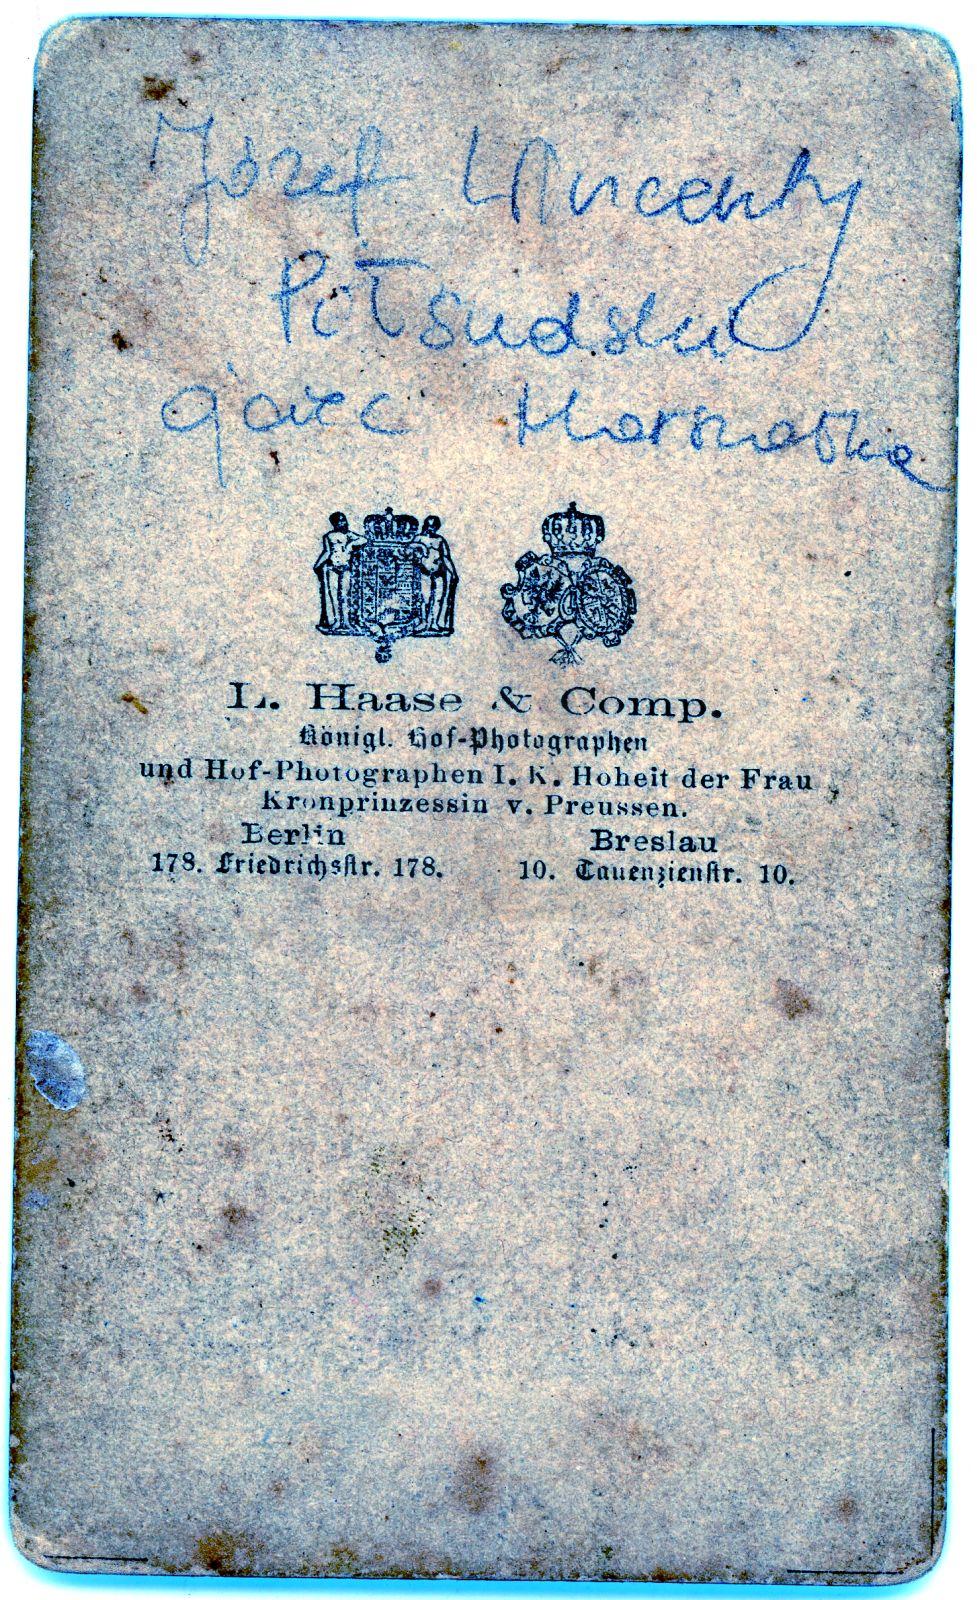 Józef Wincenty
Piłsudski
ojciec Marszałka
L. Haase & Comp.
Königl. Hof-Photographen
und Hof-Photographen I. K. Hoheit der Frau
Kronprinzessin v. Preussen.
Berlin Breslau
178. Friedrichsstr. 178. 10. Tauenzienstr. 10.